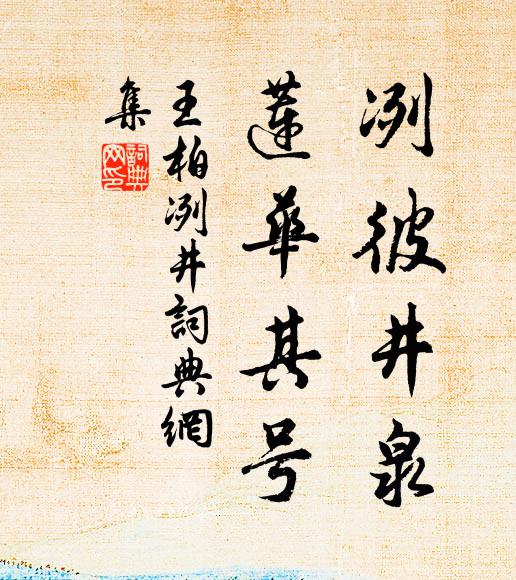 冽彼井泉
蓮華其号
王柏冽井詞典網
集
詞典網印